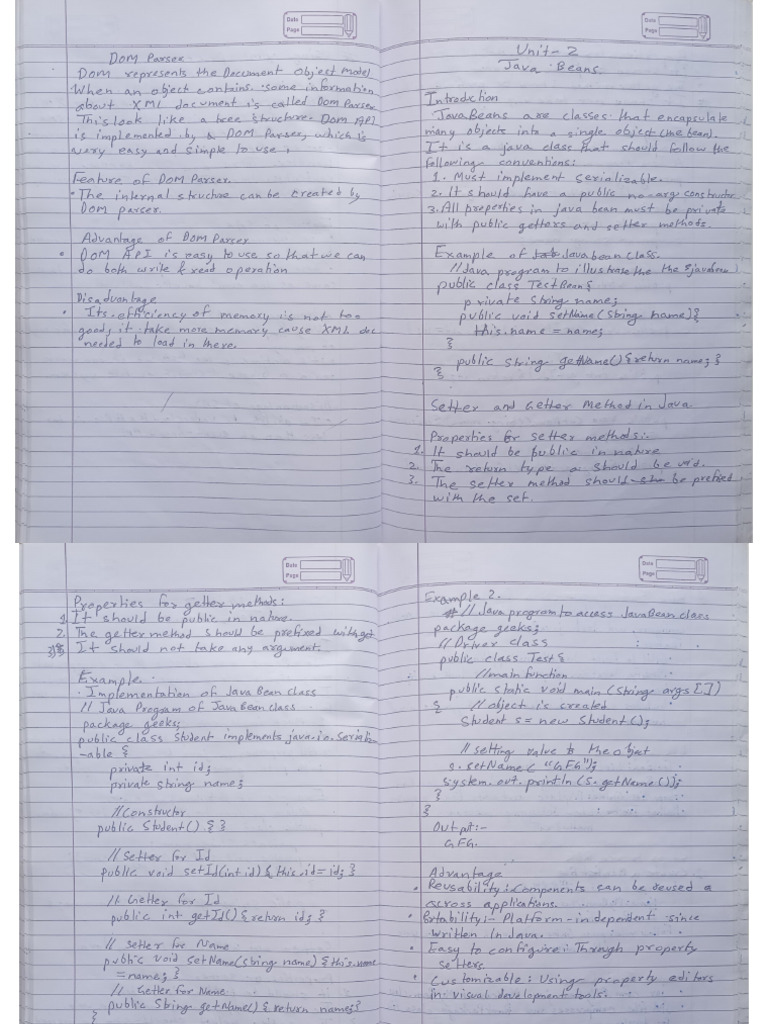 Date
Page
DOM Parser
DOM represents the Document Object Model
When an object contains some information
about XML document is called Dom Parser.
This look like a tree structure. DOM API
is implemented by a DOM Parser, which is
very easy and simple to use.
Feature of DOM Parser.
• The internal structure can be created by
Dom parser.
Advantage of DOM Parser
• DOM API is easy to use so that we can
do both write & read operation
Disadvantage
• Its efficiency of memory is not too
good, it take more memory cause XML doc
needed to load in there.
Date
Page
Unit-2
Java Beans.
Introduction
JavaBeans are classes that encapsulate
many objects into a single object (the bean).
It is a java class that should follow the
following conventions:
1. Must implement serializable.
2. It should have a public no-arg constructor
3. All properties in java bean must be private
with public getters and setter methods.
Example of Java bean class.
// Java program to illustrate the the javabean
public class TestBean {
private String name;
public void setName(String name){
this.name = name;
}
public String getName(){return name;}
}
Setter and Getter Method in Java
Properties for setter methods:-
1. It should be public in nature
2. The return type a should be void.
3. The setter method should be prefixed
with the set.
Date
Page
Properties for getter methods:
1. It should be public in nature.
2. The getter method should be prefixed with get
3. It should not take any argument.
Example.
. Implementation of Java Bean class
// Java Program of JavaBean class
package geeks;
public class Student implements java.io.Serializ-
-able {
private int id;
private string name;
//Constructor
public Student() { }
// Setter for Id
public void setId(int id) { this.id = id; }
// Getter for Id
public int getId() { return id; }
// setter for Name
public void setName(string name) { this.name
= name; }
// Getter for Name
public String getName() { return name;}
}
Date
Page
Example 2.
// Java program to access JavaBean class
package geeks;
// Driver class
public class Test {
//main function
public static void main (String args [])
{ // object is created
Student s = new Student();
// setting value to the object
s. setName( "GFG");
System.out.println (s.getName());
}
}
Output:-
GFG.
Advantage
• Reusability: Components can be reused a
across applications.
• Portability:- Platform-independent since
written in Java.
• Easy to configure: Through property
setters.
• Customizable: Using property editors
in visual development tools.